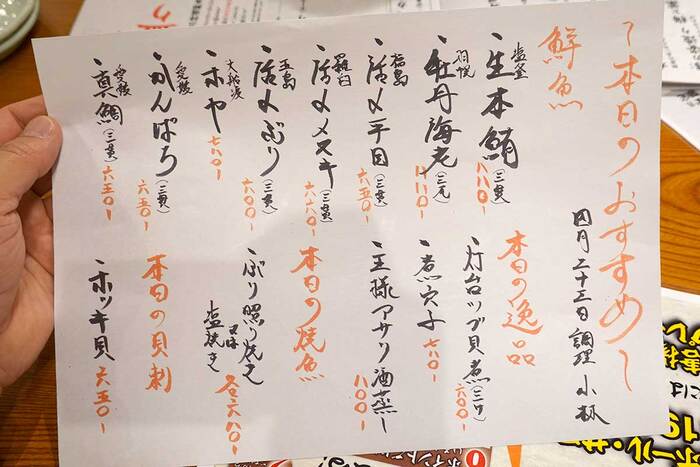 ～本日のおすすめ～
四月二十三日 調理 小林
鮮魚
塩釜
・生本鮪(三貫)
一一八〇-
羽幌
・牡丹海老(三尾)
一一八〇-
福島
・活〆平目
六五〇-
羅臼
・活〆メヌキ(三貫)
六八〇-
五島
・活〆ぶり(三貫)
六八〇-
大船渡
・ホヤ
七八〇-
愛媛
・かんぱち(三貫)
六五〇-
愛媛
・真鯛(三貫)
六五〇-
本日の逸品
・灯台ツブ貝煮(三ケ)
六〇〇-
・煮穴子
七八〇-
・王様アサリ酒蒸し
八〇〇-
本日の焼魚
・ぶり照り焼き
塩焼き
各六八〇-
本日の貝刺
・ホッキ貝
六五〇-